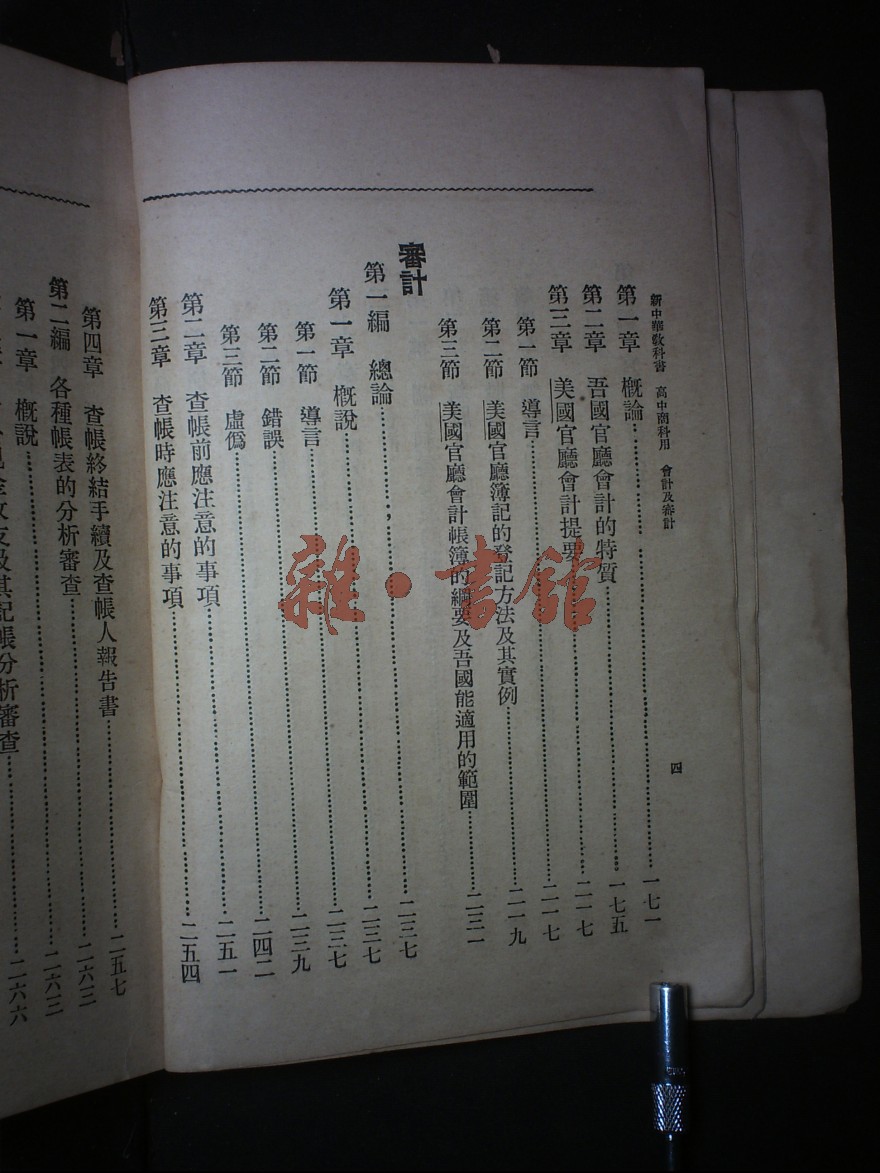 新中華教科書 高中商科用 會計及審計
四
第一章 概論……一七一
第二章 吾國官廳會計的特質……一七五
第三章 美國官廳會計提要……二一七
第一節 導言……二一七
第二節 美國官廳簿記的登記方法及其實例……二一九
第三節 美國官廳會計帳簿的綱要及吾國能適用的範圍……二三一
審計……二三七
第一編 總論……二三七
第一章 概說……二三七
第一節 導言……二三九
第二節 錯誤……二四二
第三節 虛僞……二五一
第二章 查帳前應注意的事項
第三章 查帳時應注意的事項……二五四
第四章 查帳終結手續及查帳人報告書……二五七
第二編 各種帳表的分析審查……二六三
第一章 概說……二六三
及其記帳分析審查……二六六
雜·書館